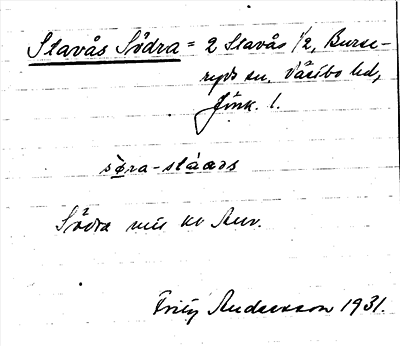 Slavås Södra = 2 Slavås 1/2, Burse-
ryds sn, Västbo hd,
Jönk. l.
søra-slåars
Södra
Fritz Andersson 1931.